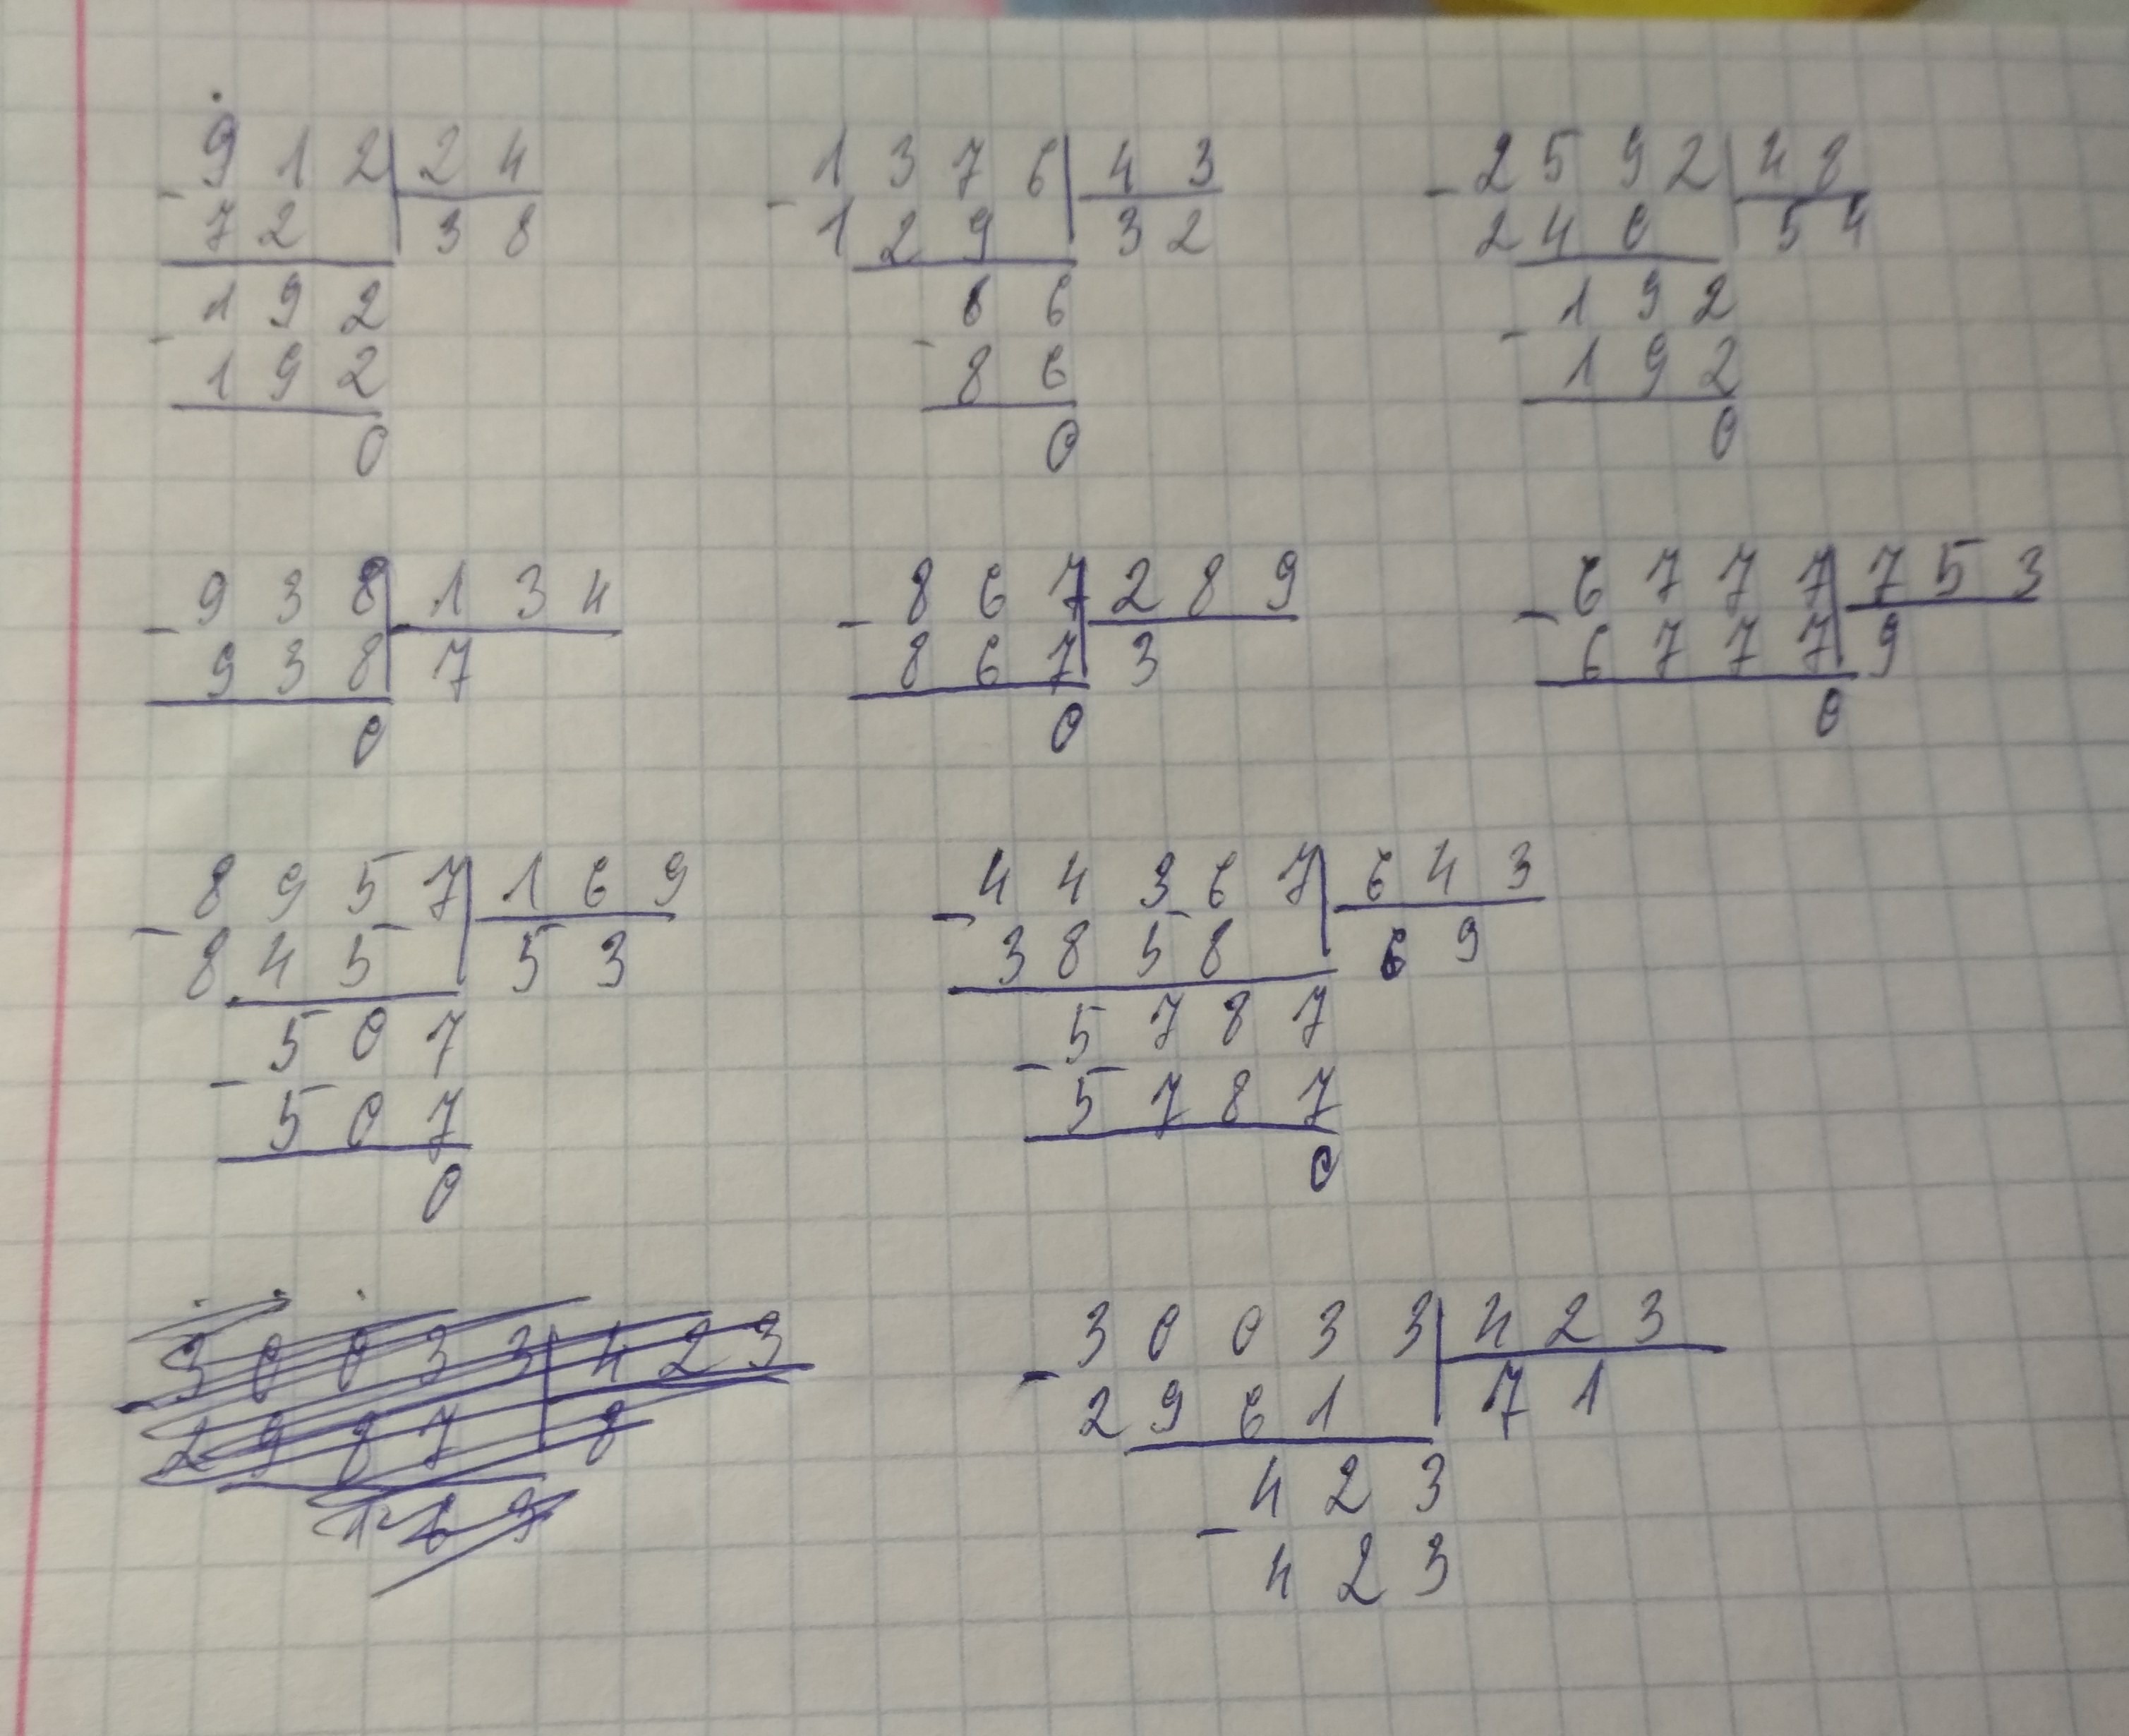 912 24 1376 43 2592 48
- 72 38 - 129 32 - 240 54
192 86 192
- 192 - 86 - 192
0 0 0
938 134 867 289 6777 753
- 938 7 - 867 3 - 6777 9
0 0 0
8957 169 44367 643
- 845 53 - 3858 69
507 5787
- 507 - 5787
0 0
30033 423 30033 423
- 2987 8 - 2961 71
423
- 423